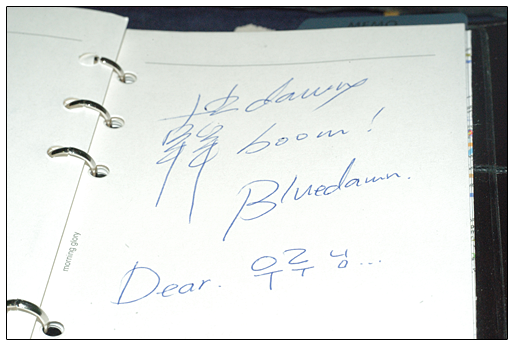 MEMO
dawn
boom!
Bluedawn.
Dear. 우루님...
morning glory